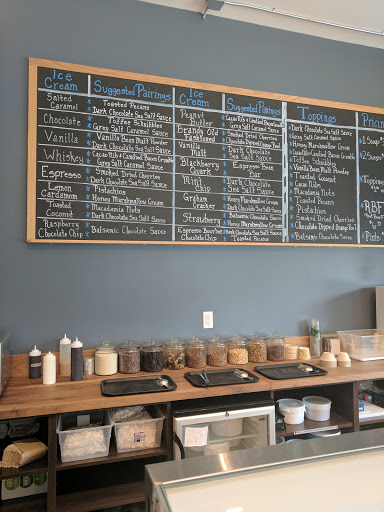 Ice Cream
Suggested Pairings
Salted Caramel
* Toasted Pecans
* Dark Chocolate Sea Salt Sauce
Chocolate
* Toffee Schnibbles
* Grey Salt Caramel Sauce
Vanilla
* Vanilla Bean Malt Powder
* Dark Chocolate Sea Salt Sauce
Whiskey
* Grey Salt Caramel Sauce
Espresso
* Smoked Dried Cherries
* Dark Chocolate Sea Salt Sauce
Lemon Cardamom
* Pistachios
* Honey Marshmallow Cream
Toasted Coconut
* Macadamia Nuts
* Dark Chocolate Sea Salt Sauce
Raspberry Chocolate Chip
* Balsamic Chocolate Sauce
Ice Cream
Suggested Pairings
Peanut Butter
* Grey Salt Caramel Sauce
Brandy Old Fashioned
* Smoked Dried Cherries
Vanilla Malt
* Dark Chocolate Sea Salt Sauce
Blackberry Quark
* Espresso Bean Bar
Mint Chip
* Dark Chocolate Sea Salt Sauce
Graham Cracker
* Honey Marshmallow
Strawberry
* Balsamic Chocolate Sauce
* Honey Marshmallow Cream
Espresso Bourbon Chocolate Chip
* Dark Chocolate Sea Salt Sauce
* Toasted Pecans
Toppings
* Dark Chocolate Sea Salt Sauce
* Grey Salt Caramel Sauce
* Honey Marshmallow Cream
* Toffee Schnibbles
* Vanilla Bean Malt Powder
* Toasted Coconut
* Cacao Nibs
* Macadamia Nuts
* Toasted Pecans
* Pistachios
* Smoked Dried Cherries
* Chocolate Dipped Orange Peel
* Balsamic Chocolate Sauce
Pricing
Toppings
Pints